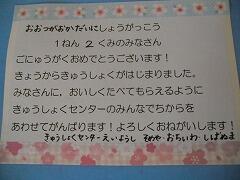 おおつがおかだいにしょうがっこう
1ねん 2 くみのみなさん
ごにゅうがくおめでとうございます!
きょうからきゅうしょくがはじまりました。
みなさんに、おいしくたべてもらえるように
きゅうしょくセンターのみんなでちからを
あわせてがんばります!よろしくおねがいします!
きゅうしょくセンターえいようし そめや・おちいわ・しばぬま